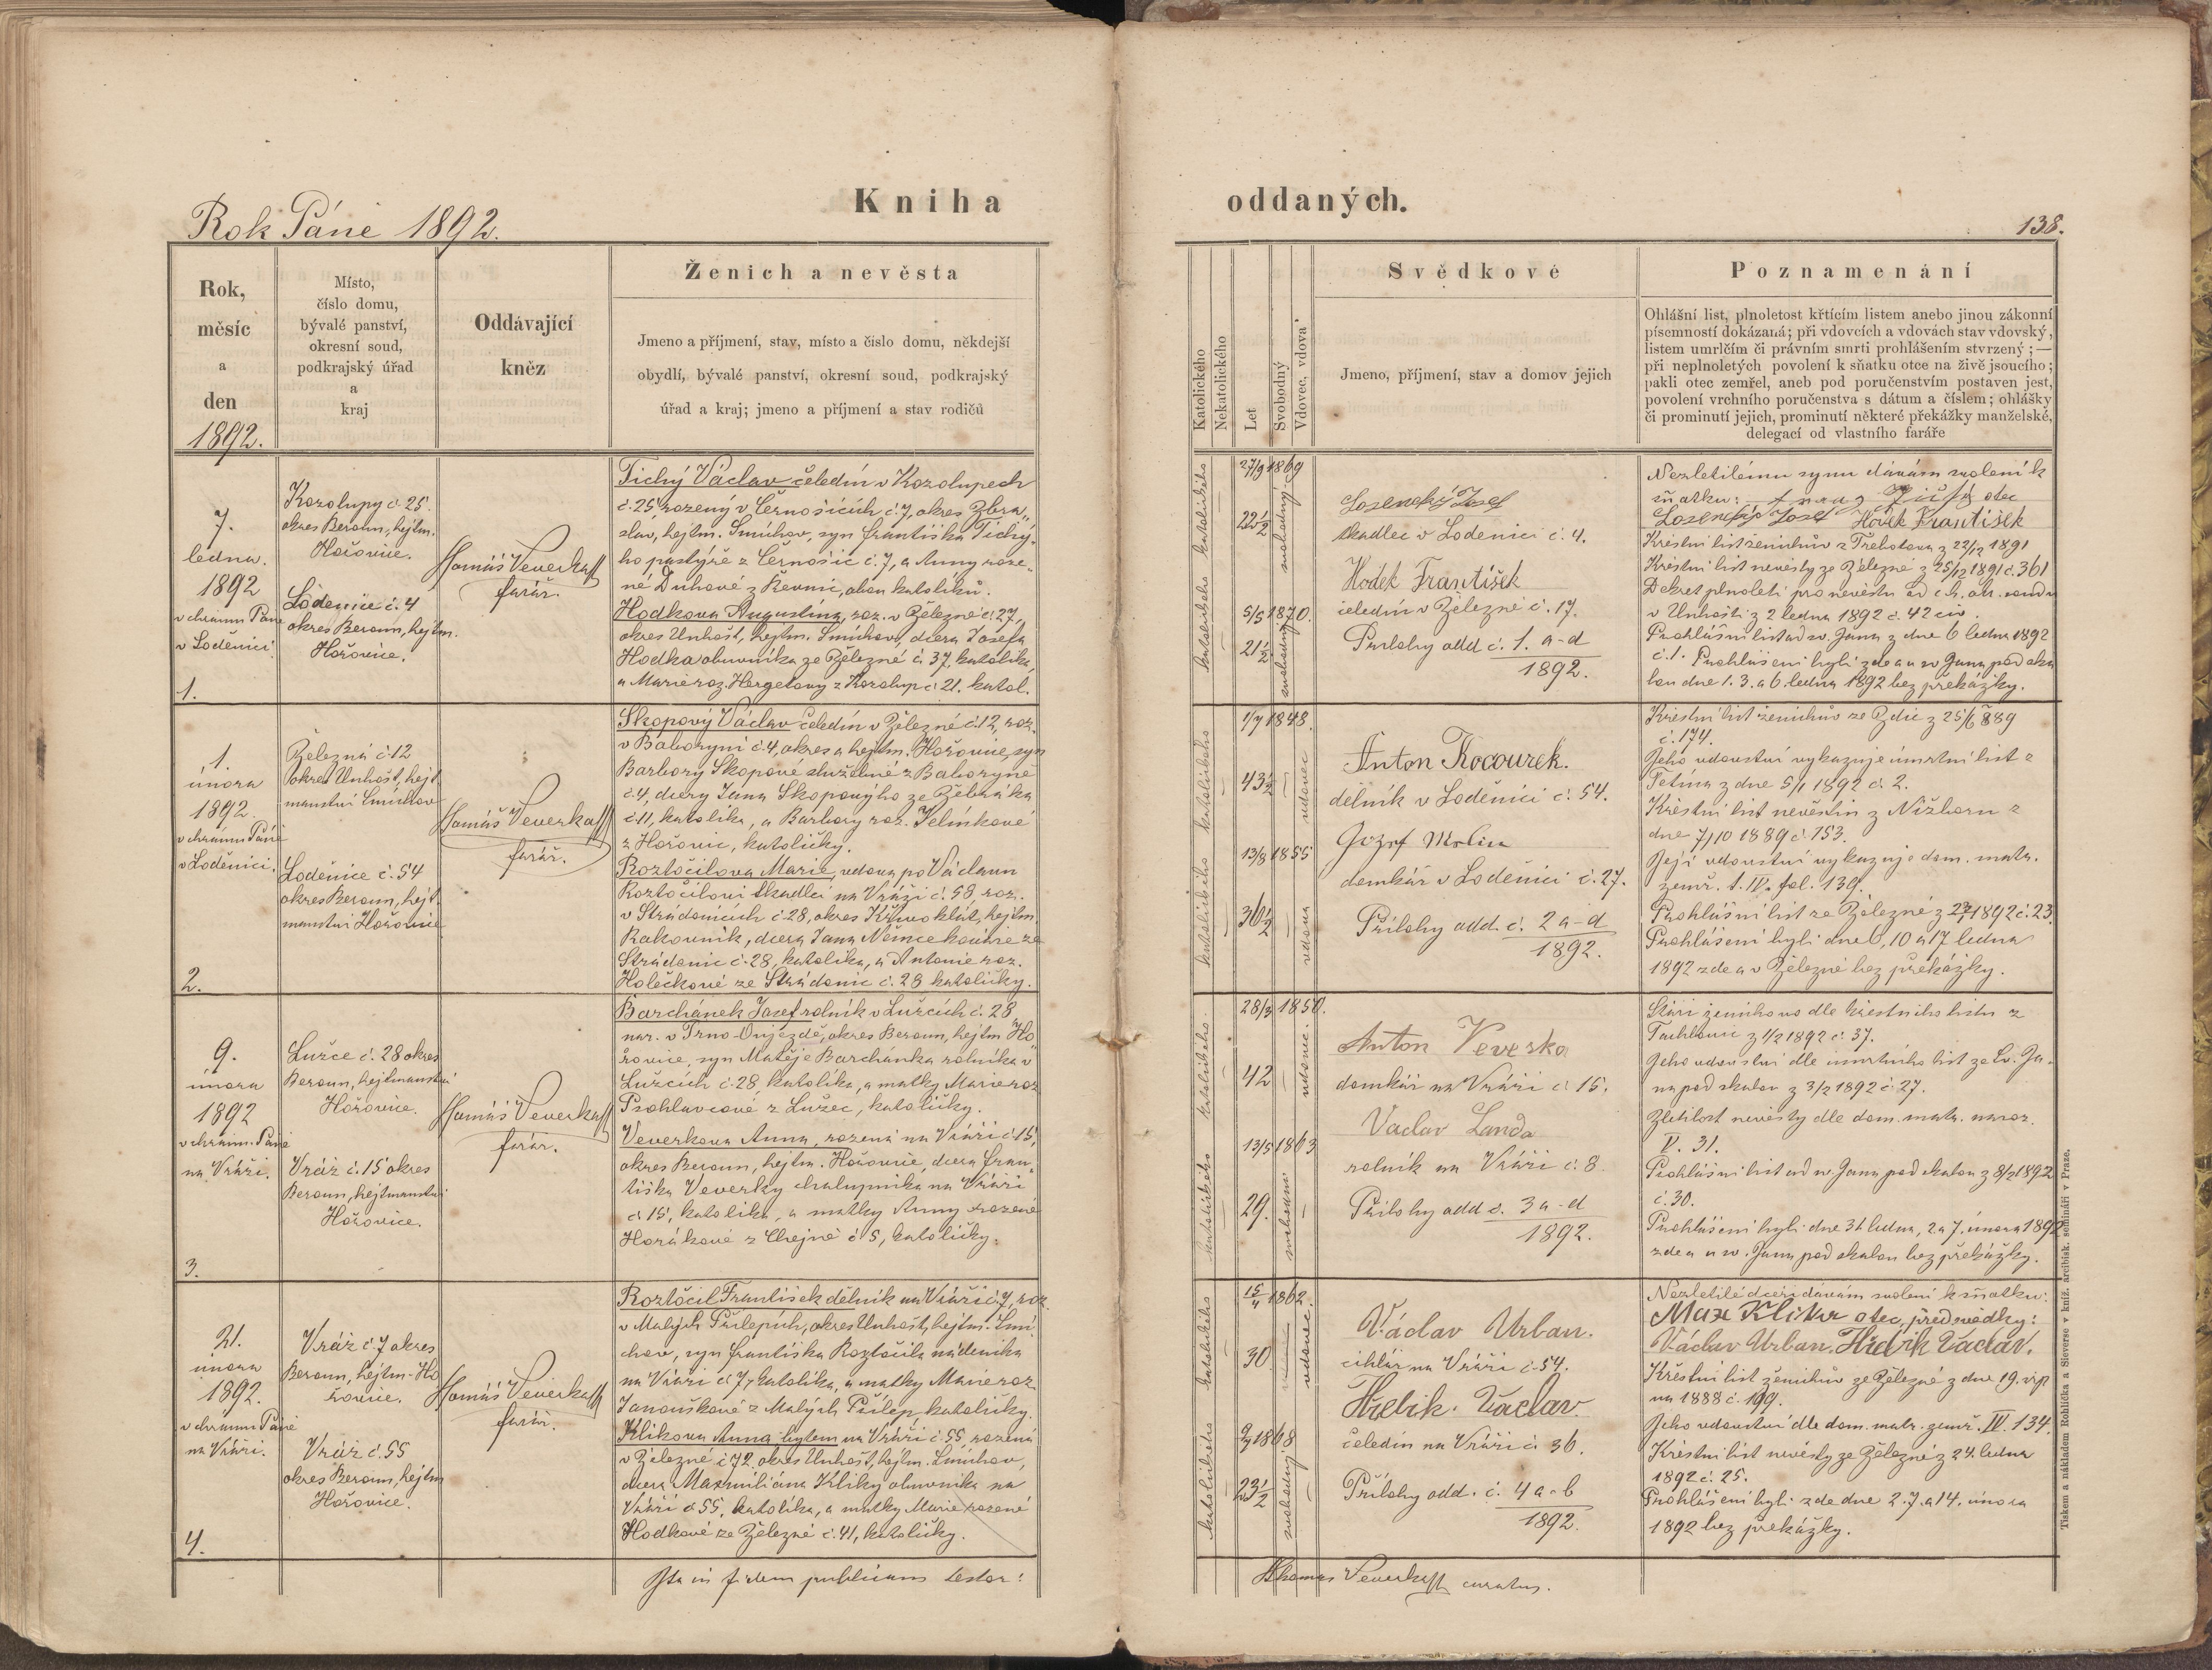 Kniha
oddaných.
Rok Páně 1892.
138.
Rok,
měsíc
a
den
1892.
Místo,
číslo domu,
bývalé panství,
okresní soud,
podkrajský úřad
a
kraj
Oddávající
kněz
Ženich a nevěsta
Jmeno a příjmení, stav, místo a číslo domu, někdejší
obydlí, bývalé panství, okresní soud, podkrajský
úřad a kraj; jmeno a příjmení a stav rodičů
Katolického
Nekatolického
Let
Svobodný
Vdovec, vdova
Svědkové
Jmeno, příjmení, stav a domov jejich
Poznamenání
Ohlášní list, plnoletost křtícím listem anebo jinou zákonní
písemností dokázaná; při vdovcích a vdovách stav vdovský,
listem umrlčím či právním smrti prohlášením stvrzený; —
při neplnoletých povolení k sňatku otce na živě jsoucího;
pakli otec zemřel, aneb pod poručenstvím postaven jest,
povolení vrchního poručenstva s dátum a číslem; ohlášky
či prominutí jejich, prominutí některé překážky manželské,
delegací od vlastního faráře
7.
ledna.
1892
v chrámu Páně
v Loděnici.
1.
Kozolupy č. 25.
okres Beroun, hejtm.
Hořovice.
Loděnice č. 4
okres Beroun, hejtm.
Hořovice.
Tomáš Veverka
farář.
Tichý Václav čeledín v Kozolupech
č. 25, rozený v Černošicích č. 7, okres Zbra„
slav, hejtm. Smíchov, syn Františka Tichý„
ho pastýře z Černošic č. 7, a Anny roze„
né Duhové z Řevnic, obou katolíků.
Hodkova Augustina, roz. v Železné č. 27,
okres Unhošť, hejtm. Smíchov, dcera Josefa
Hodka obuvníka ze Železné č. 37, katolíka,
a Marie roz. Hergetovy z Kozolup č. 21. katol.
katolického
katolického
27/9 1869
22 1/2
svobodný
5/5 1870.
21 1/2
svobodná
Losenský Josef
tkadlec v Loděnici č. 4.
Hodek František
čeledín v Železné č. 17.
Přílohy odd č. 1. a-d
1892.
Nezletilému synu dávám svolení k
sňatku: otec
Losenský Josef Hodek František
Křestní list ženichův z Třebotova z 22/12 1891
Křestní list nevěsty ze Železné z 25/12 1891 č. 361
Dekret plnoletí pro nevěstu od c. k. okr. soudu
v Unhošti z 2 ledna 1892 č. 42 civ.
Prohlášní list od sv. Jana z dne 6 ledna 1892
č. 1. Prohlášení byli zde a u sv. Jana pod ska
lou dne 1. 3. a 6. ledna 1892 bez překážky.
1.
února
1892.
v chrámu Páně
v Loděnici.
2.
Železná č. 12
okres Unhošť, hejt„
manství Smíchov
Loděnice č. 54
okres Beroun, hejt„
manství Hořovice
Tomáš Veverka
farář.
Skopový Václav čeledín v Železné č. 12, roz.
v Bavoryni č. 4, okres a hejtm. Hořovice, syn
Barbory Skopové služebné z Bavoryně
č. 4, dcery Jana Skopovýho ze Žebráka
č. 11, katolíka, a Barbory roz. Jelínkové
z Hořovic, katoličky.
Roztočilova Marie, vdova po Václavu
Roztočilovi tkadlci na Vráži č. 58, roz.
v Strádonicích č. 28, okres Křivoklát, hejtm.
Rakovník, dcera Jana Němce kováře ze
Strádonic č. 28, katolíka, a Antonie roz.
Holečkové ze Strádonic č. 28 katoličky.
katolického
katolického
1/7 1848.
43 1/2
vdovec
13/8 1855
36 1/2
vdova
Anton Kocourek.
dělník v Loděnici č. 54.
Jozef Molin
domkář v Loděnici č. 27.
Přílohy odd. č. 2 a-d
1892.
Křestní list ženichův ze Zdic z 25/6 889
č. 174.
Jeho vdovství vykazuje úmrtní list z
Tetína z dne 5/1 1892 č. 2.
Křestní list nevěstin z Nižboru z
dne 7/10 1889 č. 153.
Její vdovství vykazuje dom. matr.
zemř. t. IV. fol. 139.
Prohlášní list ze Železné z 23/1 1892 č. 23.
Prohlášení byli dne 6, 10 a 17 ledna
1892 zde a v Železné bez překážky.
9.
února
1892
v chrámu Páně
na Vráži.
3.
Lužce č. 28 okres
Beroun, hejtmanství
Hořovice.
Vráž č. 15 okres
Beroun, hejtmanství
Hořovice.
Tomáš Veverka
farář.
Barchánek Josef rolník v Lužcích č. 28
nar. v Trno-Oujezdě, okres Beroun, hejtm Ho„
řovice, syn Matěje Barchánka rolníka v
Lužcích č. 28, katolíka, a matky Marie roz
Prohlavcové z Lužec, katoličky.
Veverkova Anna, rozená na Vráži č. 15,
okres Beroun, hejtm. Hořovice, dcera Fran„
tiška Veverky chalupníka na Vráži
č. 15, katolíka, a matky Anny rozené
Horákové z Chejně č. 5, katoličky.
katolického
katolického
28/3 1850.
42
vdovec.
13/5 1863
29.
svobodná.
Anton Veverka
domkář na Vráži č. 15.
Vaclav Landa
rolník na Vráži č. 8.
Přílohy odd č. 3 a-d
1892.
Stáří ženichovo dle křestního listu z
Tachlovic z 1/2 1892 č. 37.
Jeho vdovství dle úmrtního list ze Sv. Ja„
na pod skalou z 3/2 1892 č. 27.
Zletilost nevěsty dle dom. matr. naroz.
V. 31.
Prohlášní list od sv. Jana pod skalou z 8/2 1892
č. 30.
Prohlášení byli dne 31 ledna, 2 a 7. února 1892
zde a u sv. Jana pod skalou bez překážky.
21.
února
1892.
v chrámu Páně
na Vráži.
4.
Vráž č. 7 okres
Beroun, hejtm. Ho
řovice.
Vráž č. 55
okres Beroun, hejtm
Hořovice.
Tomáš Veverka
farář.
Roztočil František dělník na Vráži č. 7, roz.
v Malých Přílepích, okres Unhošť, hejtm. Smí„
chov, syn Františka Roztočila nádeníka
na Vráži č. 7, katolíka, a matky Marie roz.
Janouškové z Malých Přílep, katoličky.
Klikova Anna bytem na Vráži č. 55 rozená
v Železné č. 72. okres Unhošť, hejtm. Smíchov,
dcera Maxmiliána Kliky obuvníka na
Vráži č. 55, katolíka, a matky Marie rozené
Hodkové ze Železné č. 41, katoličky.
katolického
katolického
15/4 1862.
30
vdovec.
1868
23 1/2
svobodný
Václav Urban.
cihlář na Vráži č. 54.
Hřebik. Vaclav.
čeledín na Vráži č. 36.
Přílohy odd. č. 4 a-b
1892.
Nezletilé dceři dávám svolení k sňatku:
Max Klika otec, před svědky:
Václav Urban. Hřebik Vaclav.
Křestní list ženichův ze Železné z dne 19. srp
na 1888 č. 199.
Jeho vdovství dle dom. matr. zemř. IV. 134.
Křestní list nevěsty ze Železné z 24. ledna
1892 č. 25.
Prohlášení byli zde dne 2. 7. a 14. února
1892 bez překážky.
Ita in fidem publicam testor:
Thomas Veverka curatus.
Tiskem a nákladem Rohlíčka a Sieverse v kníž. arcibisk. semináři v Praze.